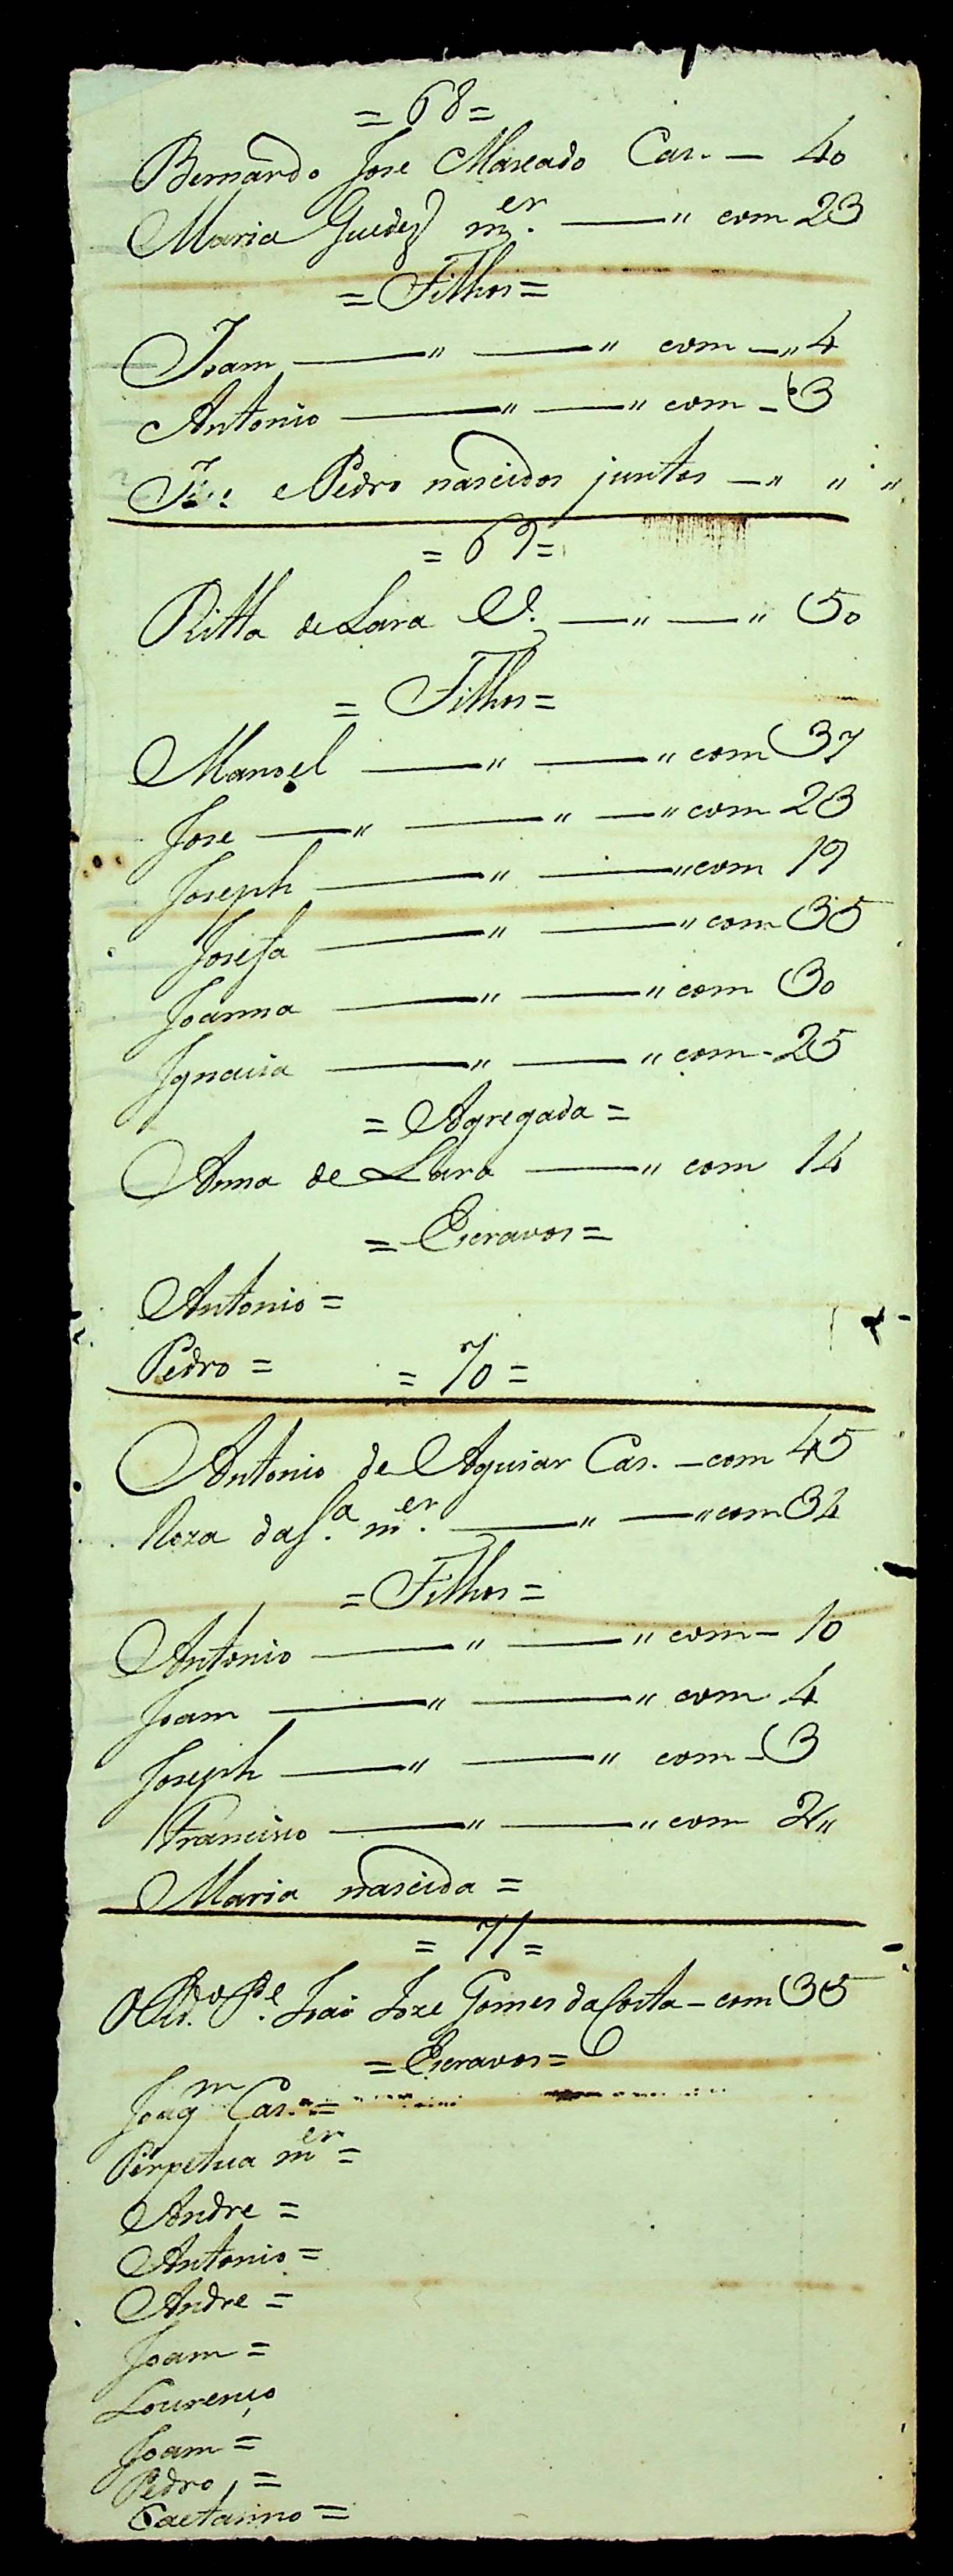 = 68 =
Bernardo Jose Macado Cas. — 40
Maria Guedes mer. — " com 23
= Filhos =
Joam — " — " com — " 4
Antonio — " — " com - 3
e Pedro nascidos juntos — " " "
= 69 =
Ritta de Lara V. — " — " 50
= Filhos =
Manoel — " — " com 37
Jose — " — " — " com 23
Joseph — " — " com 19
Josefa — " — " com 35
Joanna — " — " com 30
Ignacia — " — " com - 25
= Agregada =
Anna de Lara — " com 14
= Escravos =
Antonio =
Pedro =
= 70 =
Antonio de Aguiar Cas. — com 45
Roza da S.a mer. — " — " com 34
= Filhos =
Antonio — " — " com - 10
Joam — " — " com 4
Joseph — " — " com - 3
Francisco — " — " com 2 "
Maria nascida =
= 71 =
O Rd.o Pe. João Joze Gomes da Costa — com 35
= Escravos =
Joaqm Cas. =
Perpetua mer =
Andre =
Antonio =
Andre =
Joam =
Lourenço
Joam =
Pedro, =
Caetanno =